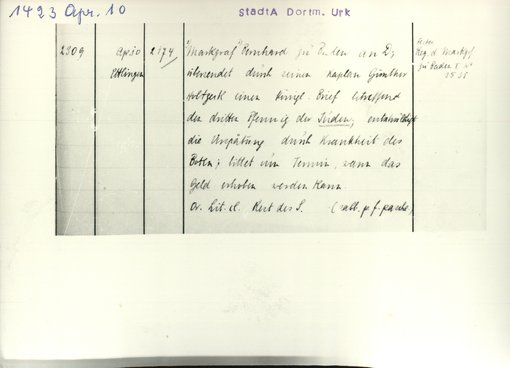 1423 Apr. 10
StadtA Dortm. Urk
2309 Apr. 10 2174 Markgraf Bernhard zu Baden an D;
Ettlingen übersendet durch seinen Kaplan Günther
einen Königl. Brief betreffend
den dritten Pfennig der Juden, entschuldigt
die Verspätung durch Krankheit des
Boten; bittet um Termin, wann das
Geld erhoben werden kann.
Or. Lit. cl. Rest des S.
Reg. d. Markgf.
zu Baden I. n°